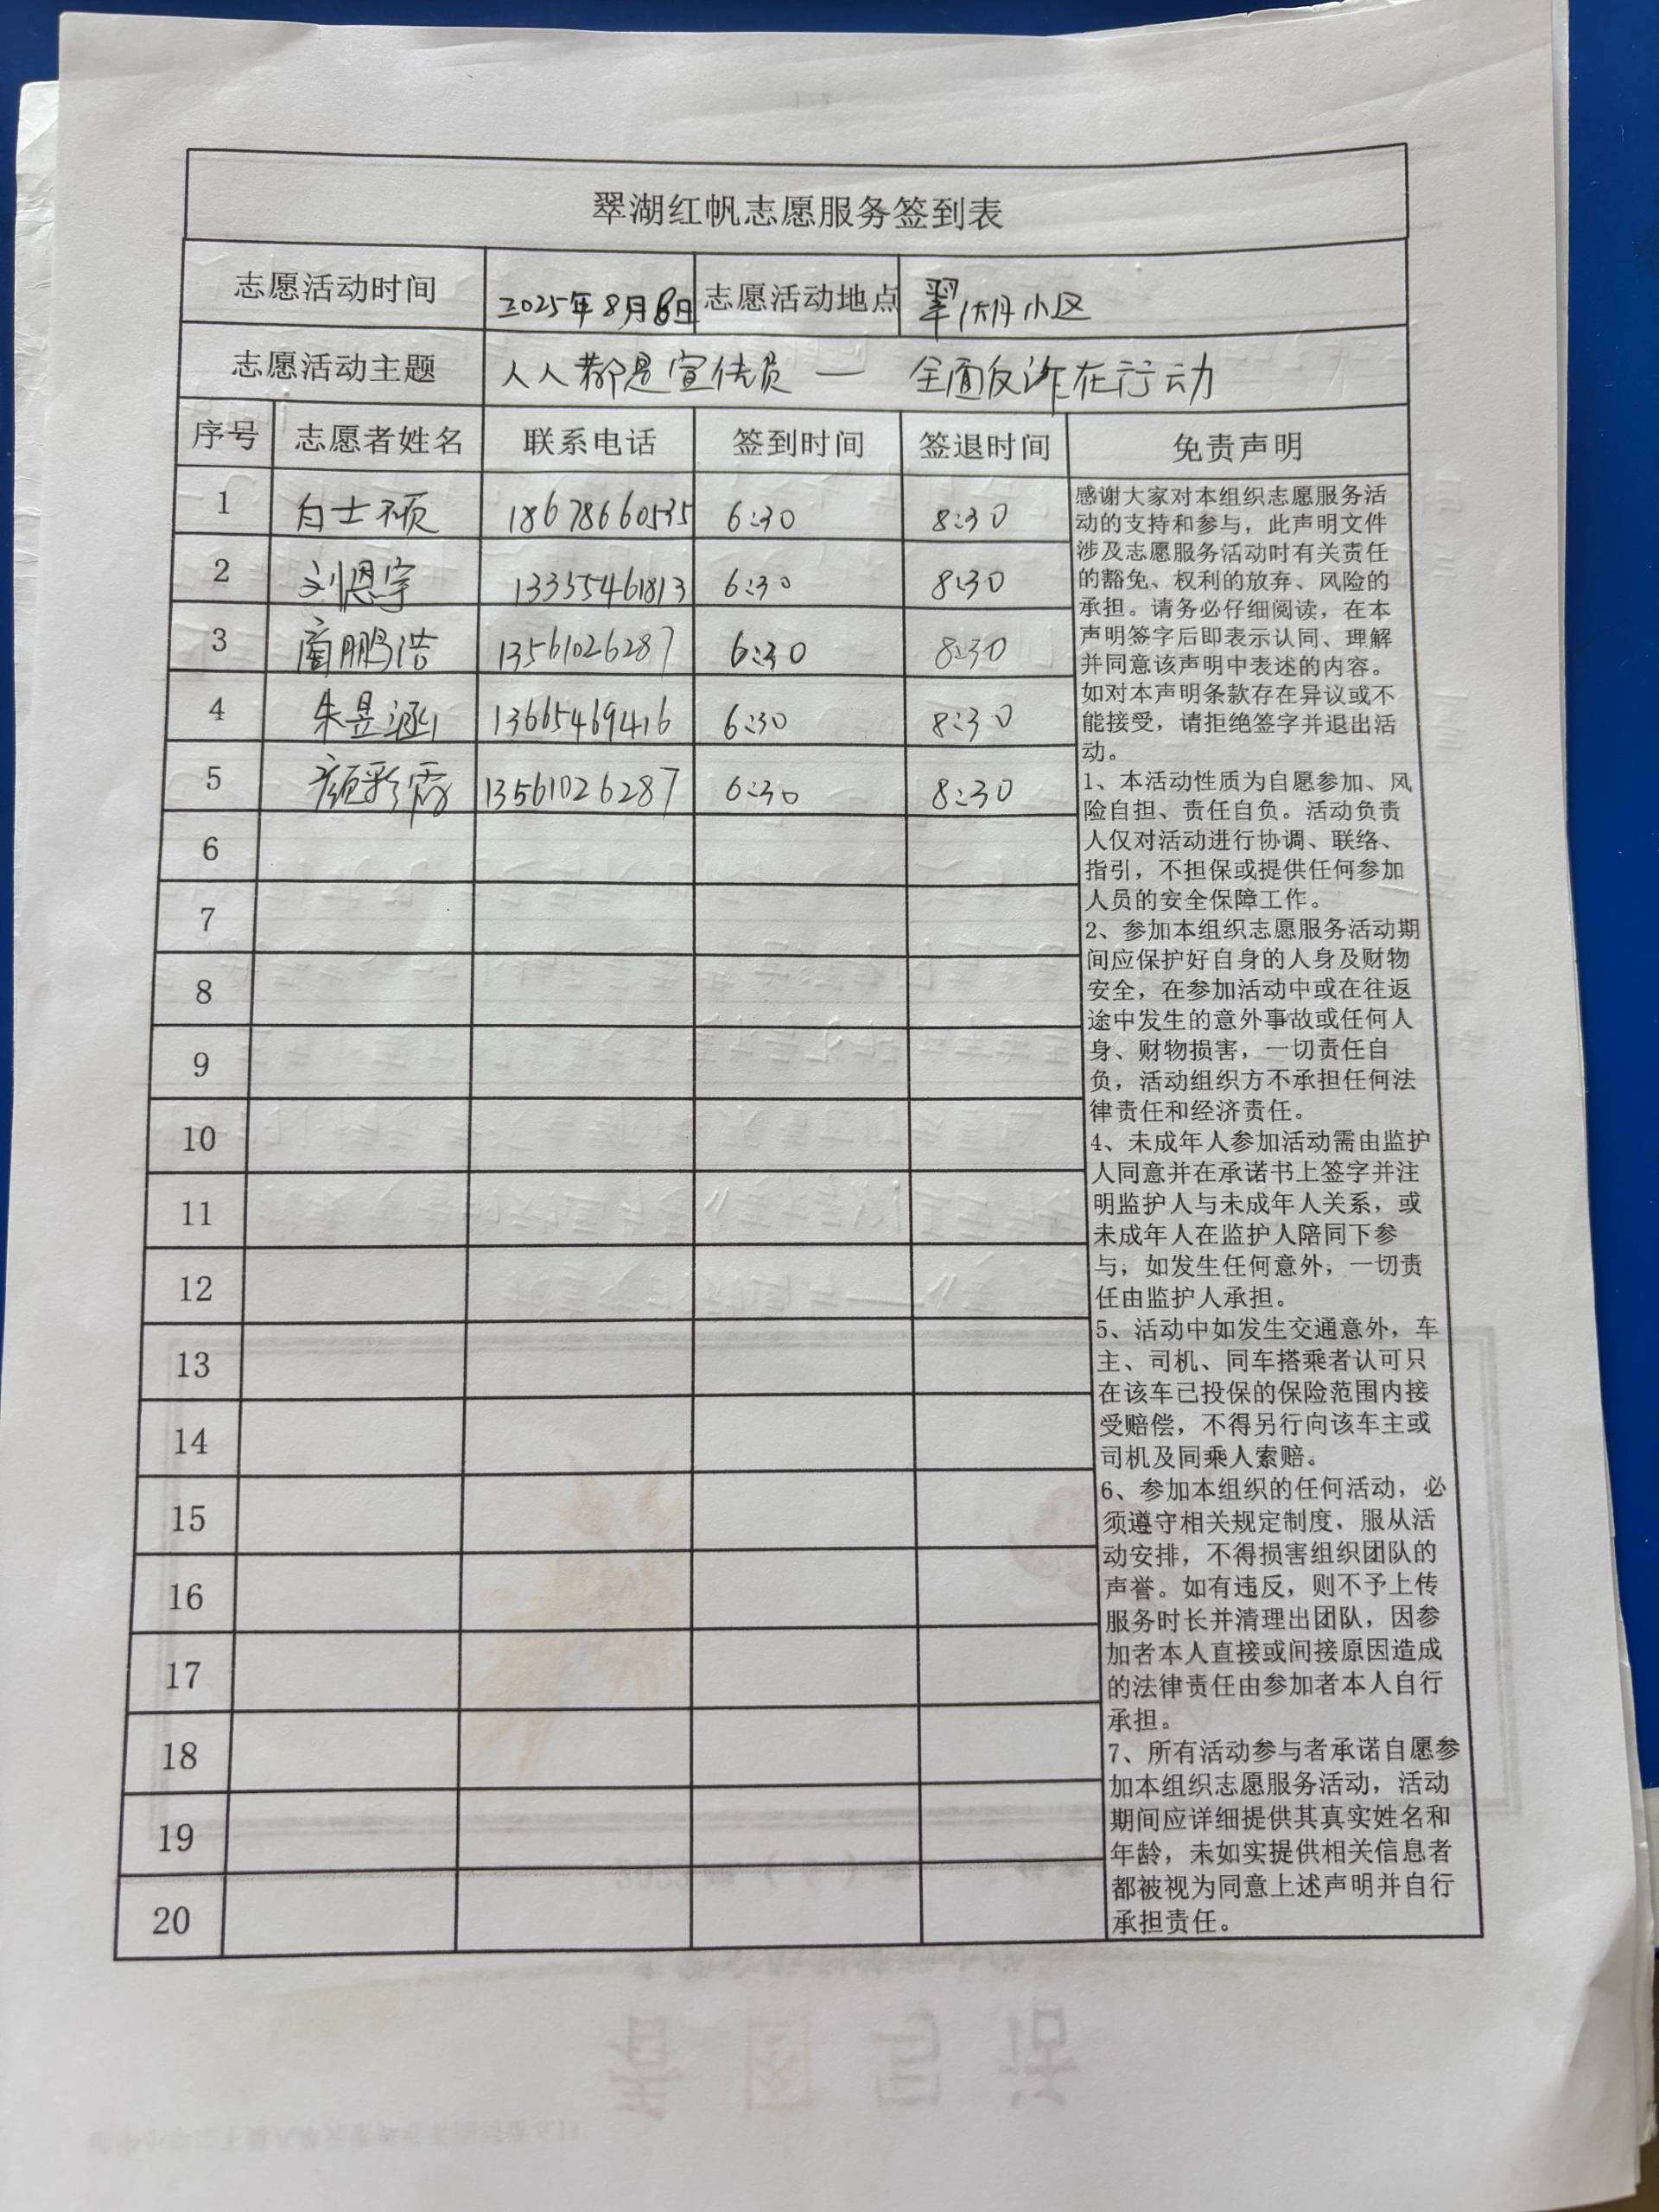 翠湖红帆志愿服务签到表
志愿活动时间 2025年8月6日 志愿活动地点 翠湖小区
志愿活动主题 人人都是宣传员 — 全面反诈在行动
序号 志愿者姓名 联系电话 签到时间 签退时间 免责声明
1 白士硕 18678660535 6:30 8:30
2 刘恩宇 13355461813 6:30 8:30
3 蔺鹏浩 13561026287 6:30 8:30
4 朱昱涵 13665469416 6:30 8:30
5 颜彩霞 13561026287 6:30 8:30
6
7
8
9
10
11
12
13
14
15
16
17
18
19
20
感谢大家对本组织志愿服务活
动的支持和参与，此声明文件
涉及志愿服务活动时有关责任
的豁免、权利的放弃、风险的
承担。请务必仔细阅读，在本
声明签字后即表示认同、理解
并同意该声明中表述的内容。
如对本声明条款存在异议或不
能接受，请拒绝签字并退出活
动。
1、本活动性质为自愿参加、风
险自担、责任自负。活动负责
人仅对活动进行协调、联络、
指引，不担保或提供任何参加
人员的安全保障工作。
2、参加本组织志愿服务活动期
间应保护好自身的人身及财物
安全，在参加活动中或在往返
途中发生的意外事故或任何人
身、财物损害，一切责任自
负，活动组织方不承担任何法
律责任和经济责任。
4、未成年人参加活动需由监护
人同意并在承诺书上签字并注
明监护人与未成年人关系，或
未成年人在监护人陪同下参
与，如发生任何意外，一切责
任由监护人承担。
5、活动中如发生交通意外，车
主、司机、同车搭乘者认可只
在该车已投保的保险范围内接
受赔偿，不得另行向该车主或
司机及同乘人索赔。
6、参加本组织的任何活动，必
须遵守相关规定制度，服从活
动安排，不得损害组织团队的
声誉。如有违反，则不予上传
服务时长并清理出团队，因参
加者本人直接或间接原因造成
的法律责任由参加者本人自行
承担。
7、所有活动参与者承诺自愿参
加本组织志愿服务活动，活动
期间应详细提供其真实姓名和
年龄，未如实提供相关信息者
都被视为同意上述声明并自行
承担责任。